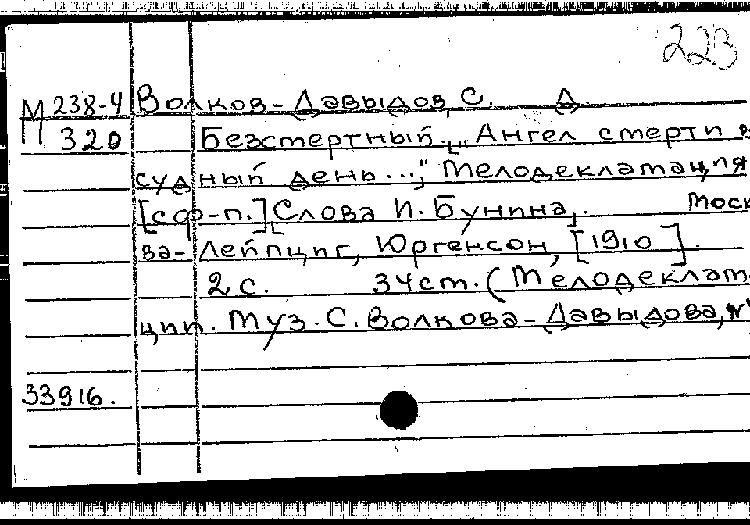 223
М 238-4 Волков-Давыдов, С. Д
320 Безсмертный. "Ангел смерти в
судный день...", Мелодекламация
[с ф-п.] Слова И. Бунина. Моск
ва-Лейпциг, Юргенсон, [1910].
2 с. 34 см. (Мелодеклам
ции. Муз. С. Волкова-Давыдова, №
33916.